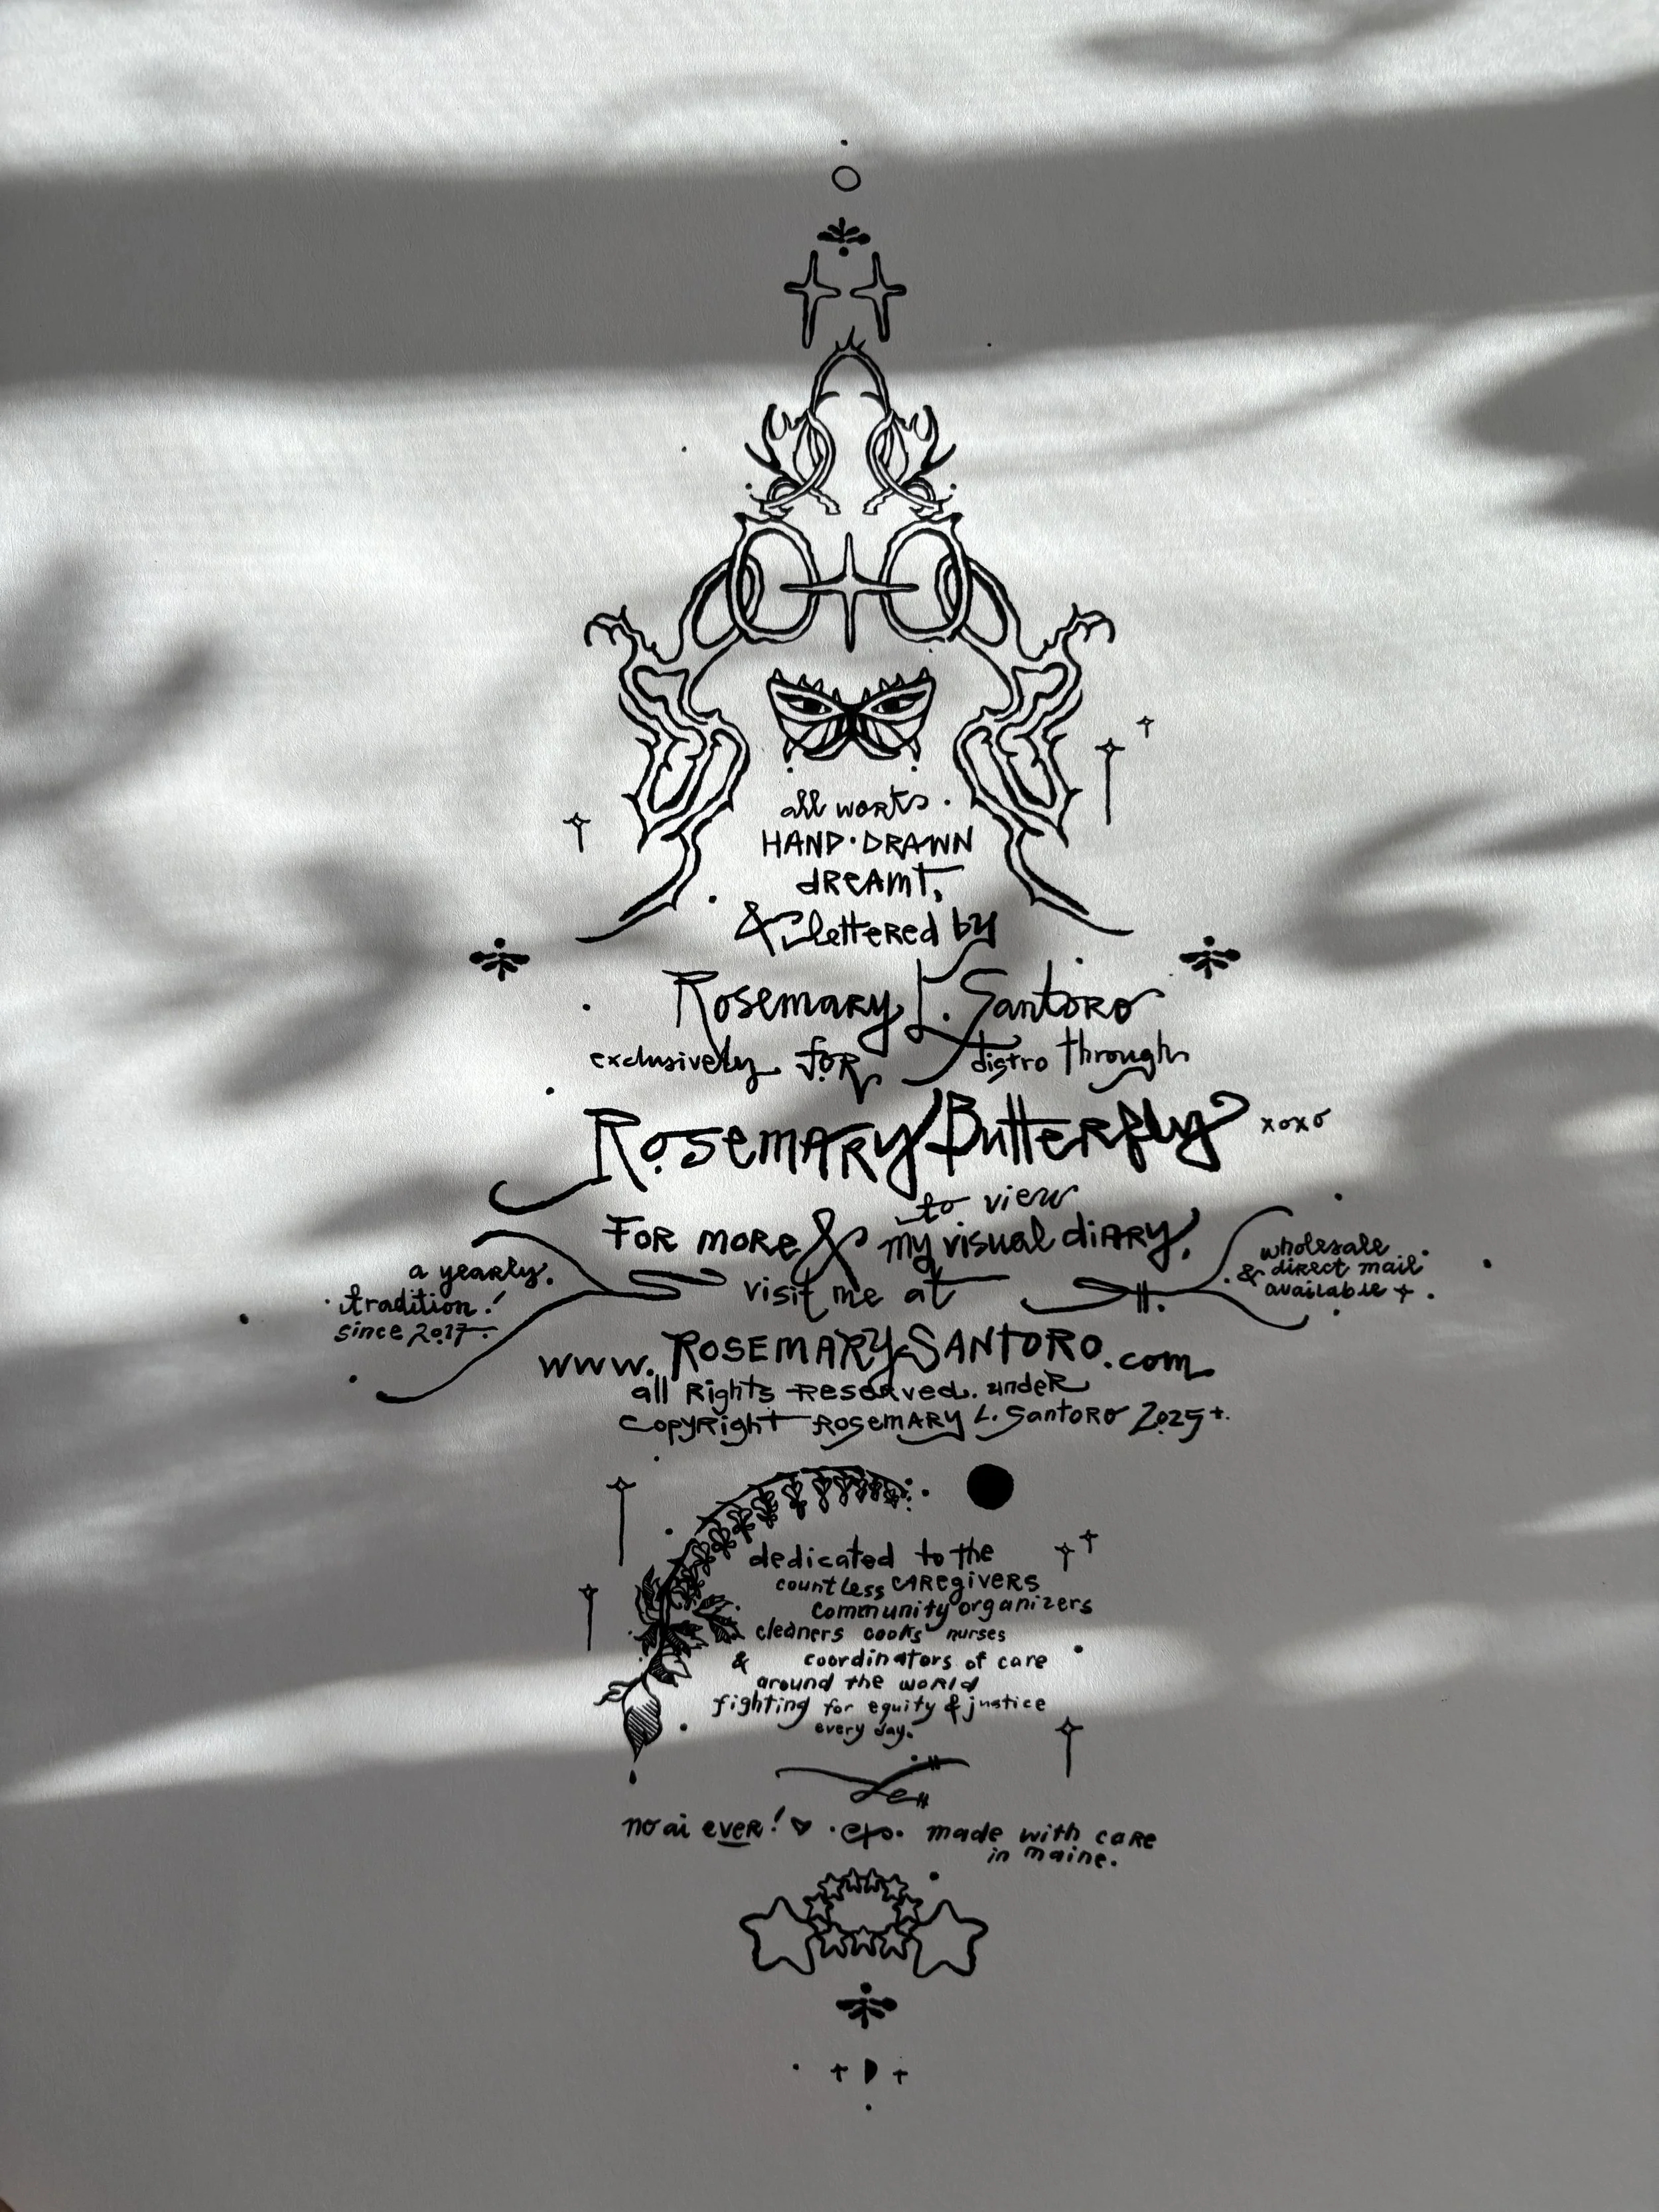 all works
HAND·DRAWN
dreamt,
& lettered by
Rosemary L. Santoro
exclusively for distro through
Rosemary Butterfly xoxo
to view
For more & my visual diary,
visit me at
a yearly
tradition!
since 2017
wholesale
& direct mail
available +
www.RosemarySantoro.com
all Rights Reserved. under
Copyright Rosemary L. Santoro 2025
dedicated to the
countless caregivers
community organizers
cleaners cooks nurses
& coordinators of care
around the world
fighting for equity & justice
every day.
no ai ever! made with care
in maine.